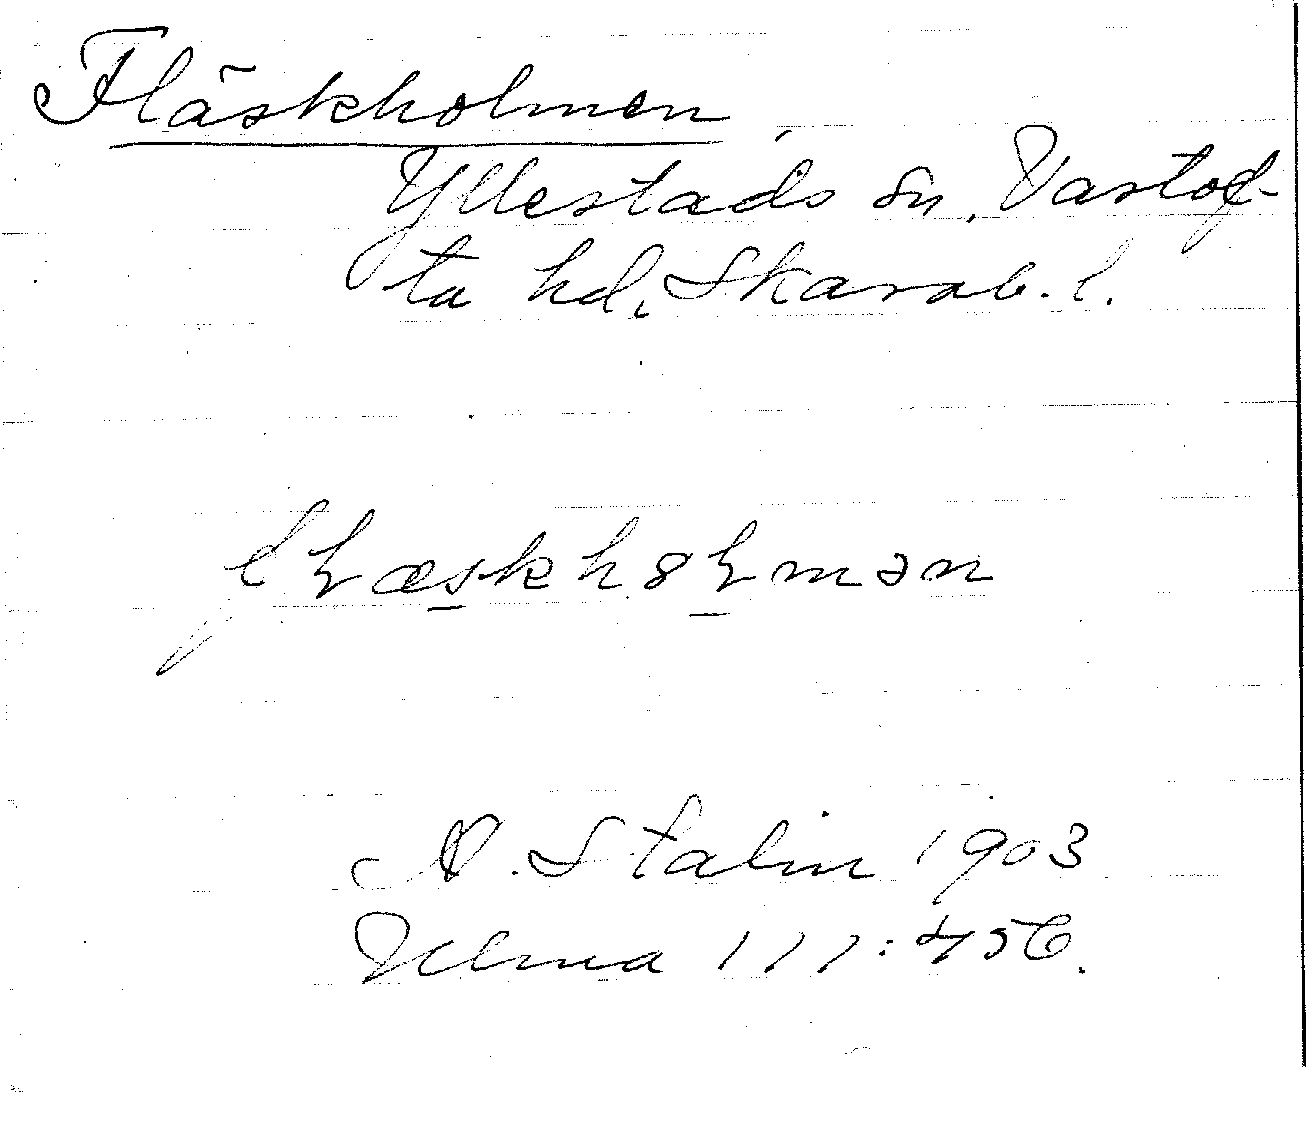 Fläskholmen,
Yllestads sn, Vartof-
ta hd, Skarab. l.
A. Stalin 1903
Ulma 111:456.